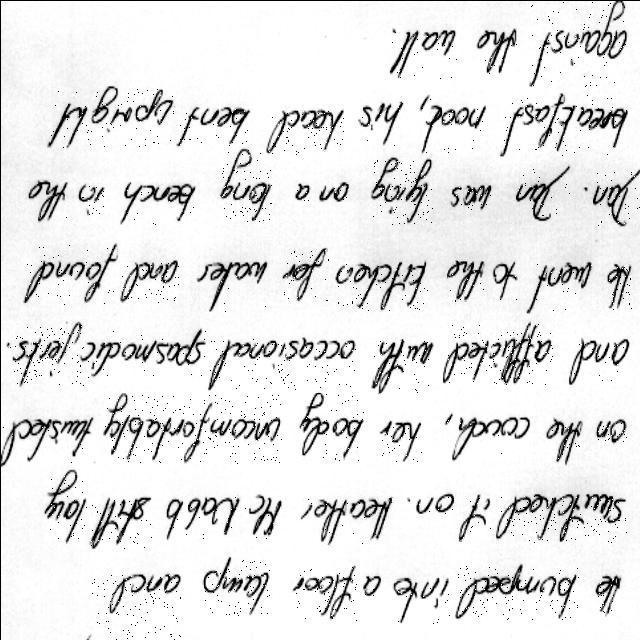 He bumped into a floor lamp and
switched it on. Heather McNabb still lay
on the couch, her body uncomfortably twisted
and afflicted with occasional spasmodic jerks.
He went to the kitchen for water and found
Jan. Jan was lying on a long bench in the
breakfast nook, his head bent upright
against the wall.